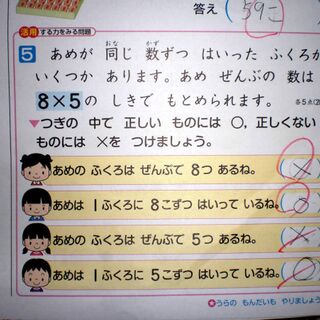 答え (59こ
活用する力をみる問題
5 あめが 同じ 数ずつ はいった ふくろが
おな かず
いくつか あります。あめ ぜんぶの 数は
8×5の しきで もとめられます。
各5点(2
▼つぎの 中で 正しい ものには ○, 正しくない
ものには ×を つけましょう。
あめの ふくろは ぜんぶで 8つ あるね。 (×
あめは 1ふくろに 8こずつ はいって いるね。(○
あめの ふくろは ぜんぶで 5つ あるね。 (×
あめは 1ふくろに 5こずつ はいって いるね。(○
★うらの もんだいも やりましょう